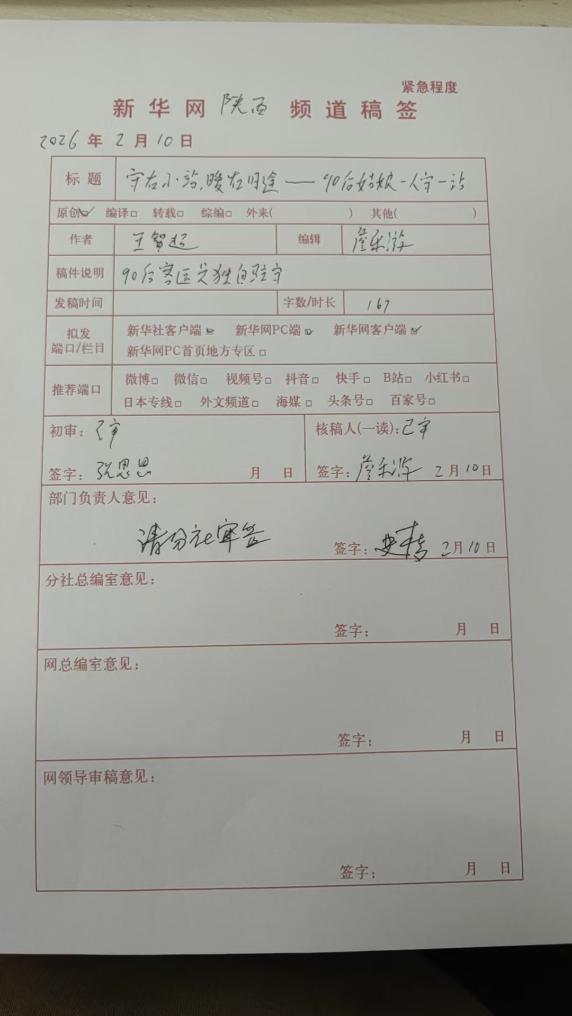 紧急程度
新华网陕西频道稿签
2026年2月10日
标题 守在小站,暖在归途——90后姑娘一人守一站
原创☑ 编译□ 转载□ 综编□ 外来( ) 其他( )
作者 王智超 编辑
稿件说明 90后客运员独自驻守
发稿时间 字数/时长 1'67
拟发端口/栏目 新华社客户端☑ 新华网PC端☑ 新华网客户端☑
新华网PC首页地方专区□
推荐端口 微博□ 微信□ 视频号□ 抖音□ 快手□ B站□ 小红书□
日本专线□ 外文频道□ 海媒□ 头条号□ 百家号□
初审:已审 核稿人(一读):已审
签字:张思思 月 日 签字: 2月10日
部门负责人意见:
请分社审签 签字: 2月10日
分社总编室意见:
签字: 月 日
网总编室意见:
签字: 月 日
网领导审稿意见:
签字: 月 日